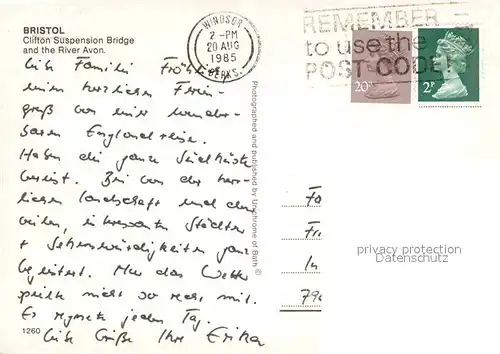 BRISTOL
Clifton Suspension Bridge
and the River Avon.
WINDSOR
2 -PM
20 AUG
1985
BERKS.
REMEMBER
to use the
POST CODE!
20
2P
Liebe Familie Fröhlich,
einen herzlichen Ferien-
gruß von einer wunder-
baren Englandreise.
Haben die ganze Südküste
bereist. Bin von der herr-
lichen Landschaft und den
vielen, interessanten Städten
+ Sehenswürdigkeiten ganz
begeistert. Nur das Wetter
spielt nicht so recht mit.
Es regnete jeden Tag.
Liebe Grüße Ihre Erika
1260
Photographed and published by Unichrome of Bath ©
Fa
In
privacy protection
www.ansichtskarten-center.de